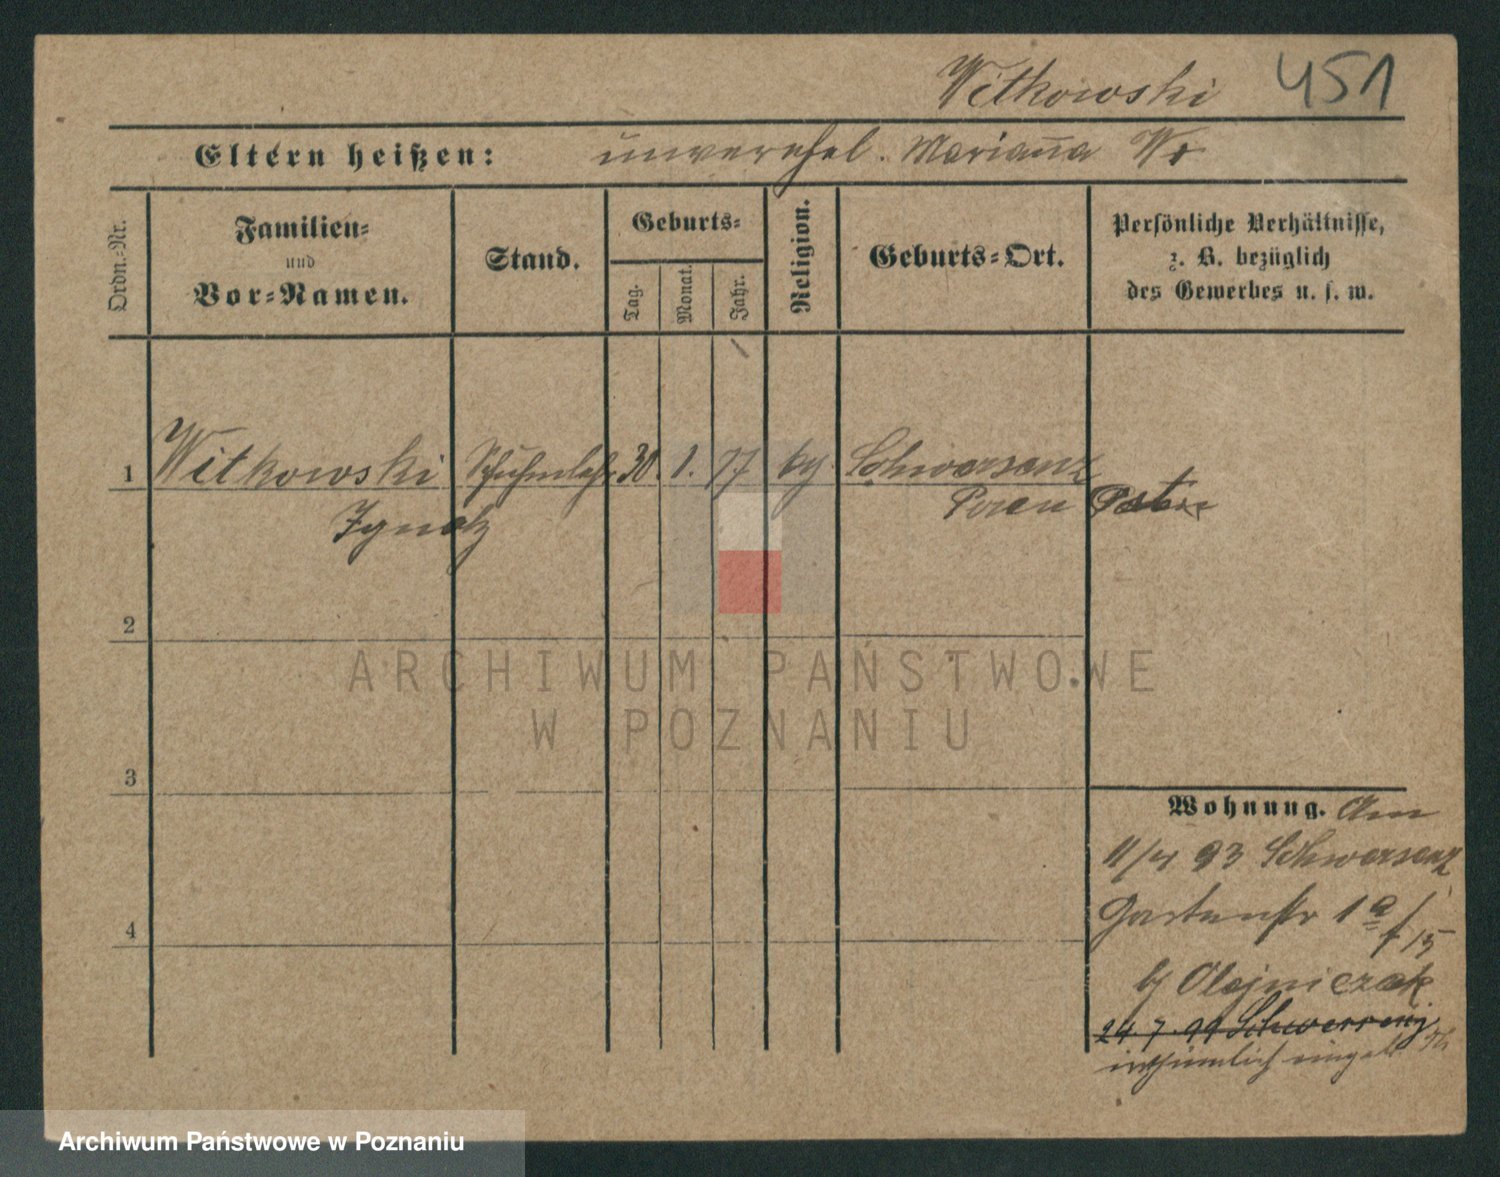 Witkowski 451
Eltern heißen: unverehel. Marianna W.
Ordn.-Nr.
Familien-
und
Vor-Namen.
Stand.
Geburts-
Tag.
Monat.
Jahr.
Religion.
Geburts-Ort.
Persönliche Verhältnisse,
z. B. bezüglich
des Gewerbes u. s. w.
1 Witkowski Schuhmlehr. 30. 1. 77 Schwersenz
Ignatz Posen
2
3
4
Wohnung. Am
11/4 93 Schwersenz
Gartenstr 1a/15
b/ Olejniczak
24. 7. 99 Schwersenz
irrthümlich
ARCHIWUM PAŃSTWOWE
W POZNANIU
Archiwum Państwowe w Poznaniu